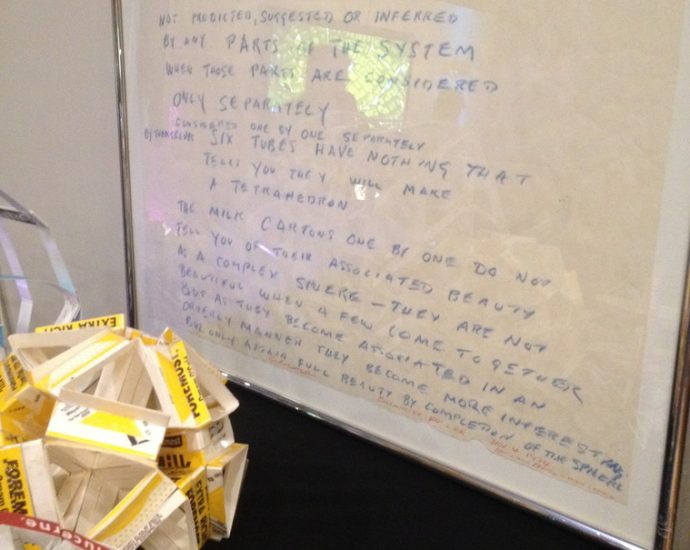 NOT PREDICTED, SUGGESTED OR INFERRED
BY ANY PARTS OF THE SYSTEM
WHEN THOSE PARTS ARE CONSIDERED
ONLY SEPARATELY
CONSIDERED ONE BY ONE SEPARATELY
BY THEMSELVES SIX TUBES HAVE NOTHING THAT
TELLS YOU THEY WILL MAKE
A TETRAHEDRON
THE MILK CARTONS ONE BY ONE DO NOT
TELL YOU OF THEIR ASSOCIATED BEAUTY
AS A COMPLEX SPHERE – THEY ARE NOT
BEAUTIFUL WHEN A FEW COME TOGETHER
BUT AS THEY BECOME ASSOCIATED IN AN
ORDERLY MANNER THEY BECOME MORE INTERESTING
BUT ONLY ATTAIN FULL BEAUTY BY COMPLETION OF THE SPHERE
EXTRA RICH
FOREMOST
FOREM
ucerne